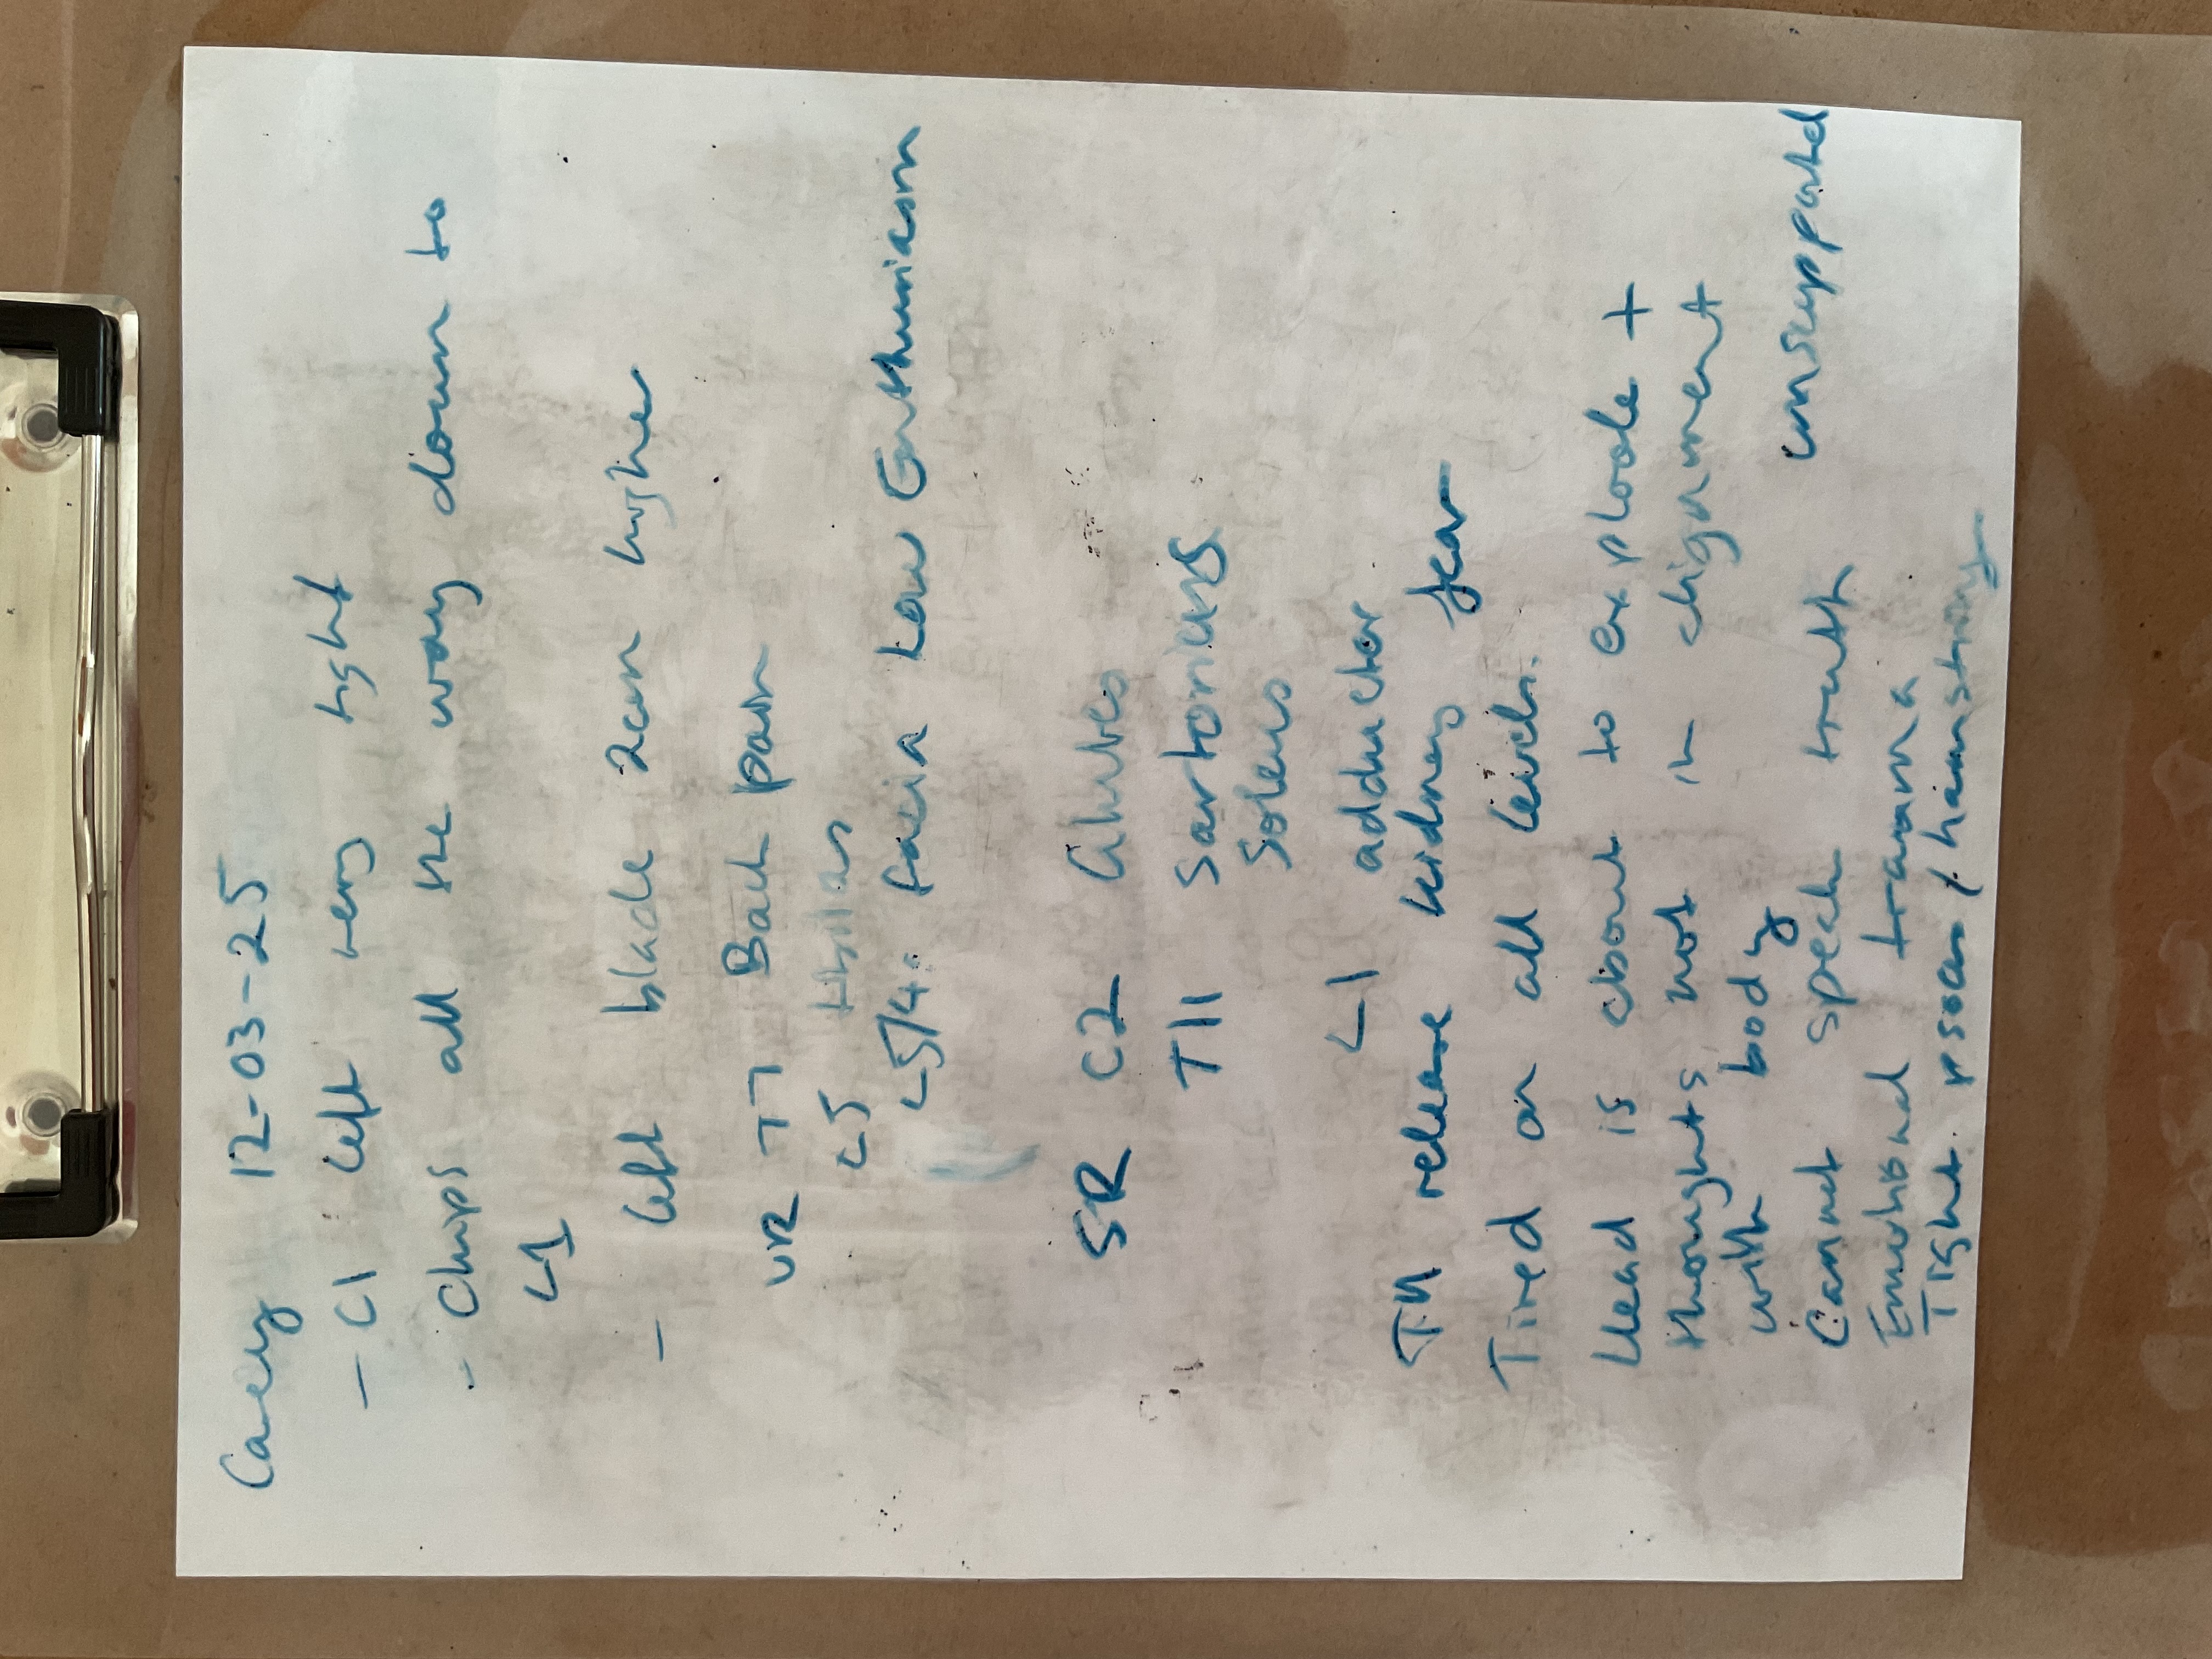 Carey 12-03-25
- C1 left very tight
- Chips all the way down to
L1
- left blade 2cm higher
VR T7 Back pain
L5
L5/4: facia Low Enthusiasm
SR C2 Glutes
T11 Sartorius
Soleus
L1 adductor
TH release kidney fear
Tired on all levels.
Head is about to explode +
thoughts not in alignment
with body
Cannot speak truth unsupported
Emotional trauma
Tight psoas / hamstring